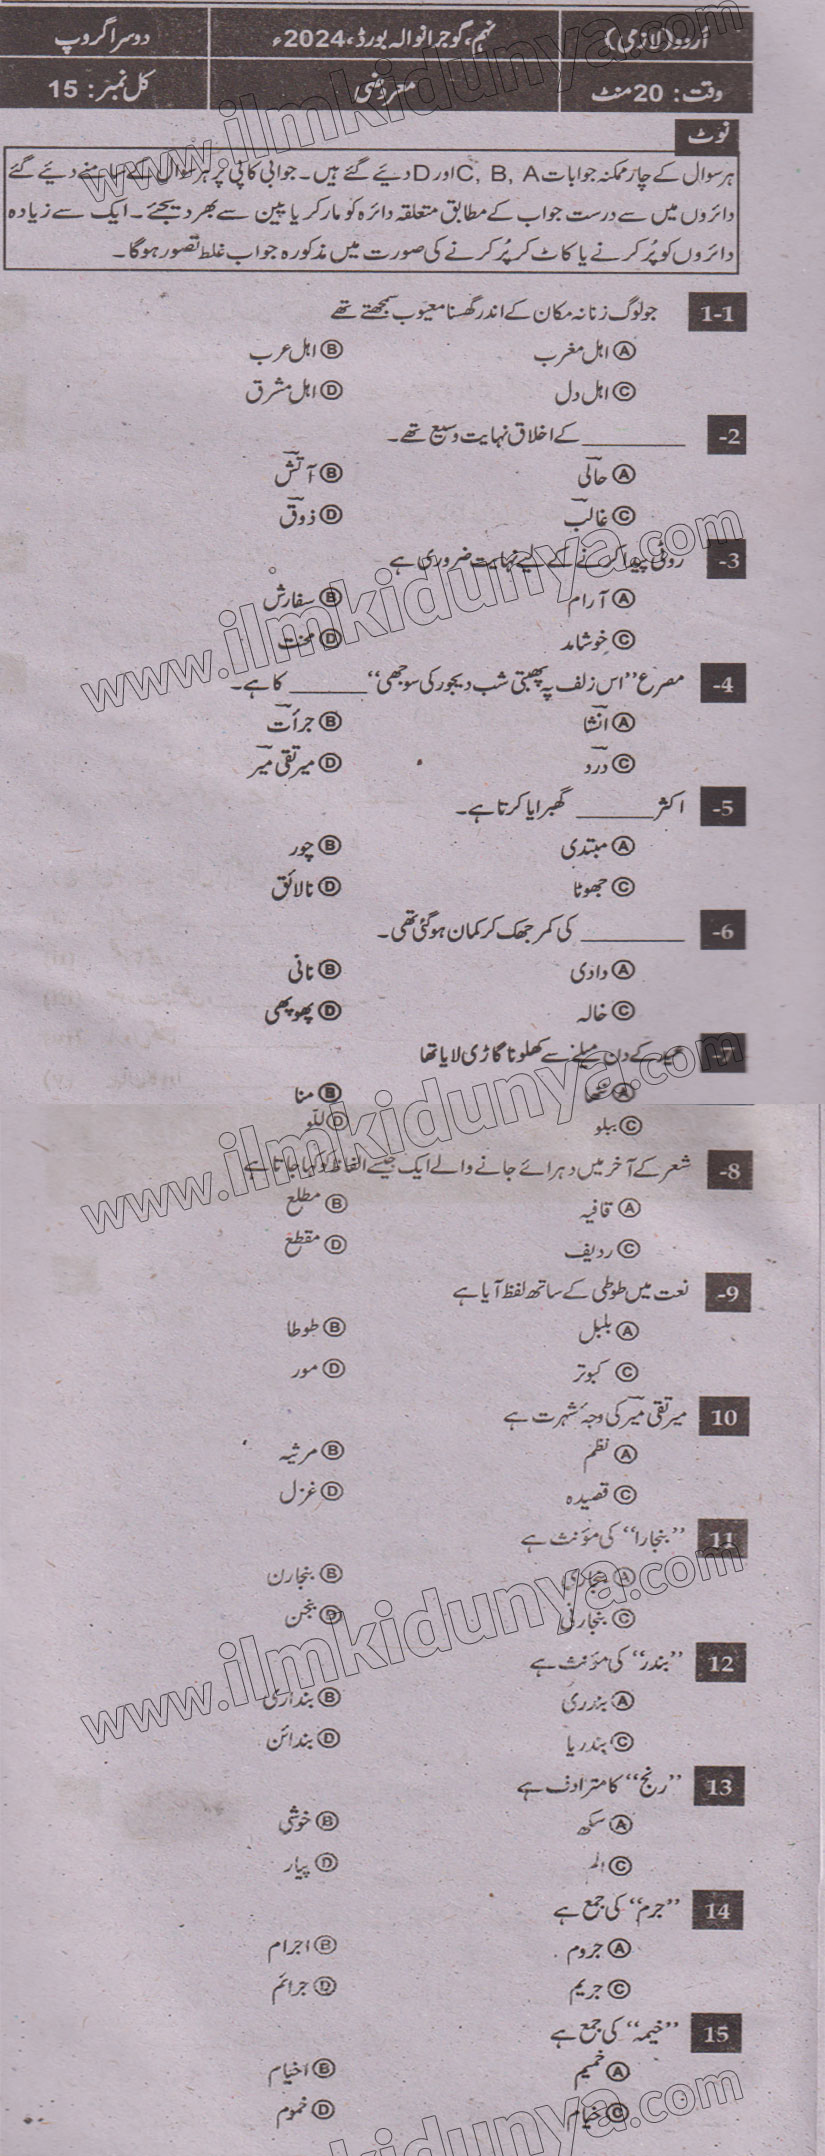 اردو (لازمی) نہم، گوجرانوالہ بورڈ، 2024ء دوسرا گروپ
وقت: 20 منٹ معروضی کل نمبر: 15
نوٹ
ہر سوال کے چار ممکنہ جوابات C, B, A اور D دیئے گئے ہیں۔ جوابی کاپی پر ہر سوال کے سامنے دیئے گئے
دائروں میں سے درست جواب کے مطابق متعلقہ دائرہ کو مارکر یا پین سے بھر دیجئے۔ ایک سے زیادہ
دائروں کو پُر کرنے یا کاٹ کر پُر کرنے کی صورت میں مذکورہ جواب غلط تصور ہوگا۔
1-1 جو لوگ زنانہ مکان کے اندر گھسنا معیوب سمجھتے تھے
Ⓐ اہل مغرب Ⓑ اہل عرب
Ⓒ اہل دل Ⓓ اہل مشرق
-2 ________ کے اخلاق نہایت وسیع تھے۔
Ⓐ حالیؔ Ⓑ آتشؔ
Ⓒ غالبؔ Ⓓ ذوقؔ
-3 روٹی پیدا کرنے کے لیے نہایت ضروری ہے
Ⓐ آرام Ⓑ سفارش
Ⓒ خوشامد Ⓓ محنت
-4 مصرع ”اس زلف پہ پھبتی شب دیجور کی سوجھی“ ______ کا ہے۔
Ⓐ انشاؔ Ⓑ جرأتؔ
Ⓒ دردؔ Ⓓ میر تقی میرؔ
-5 اکثر ______ گھبرایا کرتا ہے۔
Ⓐ مبتدی Ⓑ چور
Ⓒ جھوٹا Ⓓ نالائق
-6 ________ کی کمر جھک کر کمان ہوگئی تھی۔
Ⓐ دادی Ⓑ نانی
Ⓒ خالہ Ⓓ پھوپھی
-7 عید کے دن میلے سے کھلونا گاڑی لایا تھا
Ⓐ ننھا Ⓑ منا
Ⓒ ببلو Ⓓ للّو
-8 شعر کے آخر میں دہرائے جانے والے ایک جیسے الفاظ کو کہا جاتا ہے
Ⓐ قافیہ Ⓑ مطلع
Ⓒ ردیف Ⓓ مقطع
-9 نعت میں طوطی کے ساتھ لفظ آیا ہے
Ⓐ بلبل Ⓑ طوطا
Ⓒ کبوتر Ⓓ مور
10 میر تقی میرؔ کی وجۂ شہرت ہے
Ⓐ نظم Ⓑ مرثیہ
Ⓒ قصیدہ Ⓓ غزل
11 ”بنجارا“ کی مؤنث ہے
Ⓐ بنجاری Ⓑ بنجارن
Ⓒ بنجارنی Ⓓ بنجن
12 ”بندر“ کی مؤنث ہے
Ⓐ بندری Ⓑ بنداری
Ⓒ بندریا Ⓓ بندائن
13 ”رنج“ کا مترادف ہے
Ⓐ سکھ Ⓑ خوشی
Ⓒ الم Ⓓ پیار
14 ”جرم“ کی جمع ہے
Ⓐ جروم Ⓑ اجرام
Ⓒ جریم Ⓓ جرائم
15 ”خیمہ“ کی جمع ہے
Ⓐ خمیم Ⓑ اخیام
Ⓒ خیام Ⓓ خموم
www.ilmkidunya.com
www.ilmkidunya.com
www.ilmkidunya.com
www.ilmkidunya.com
kidunya.com